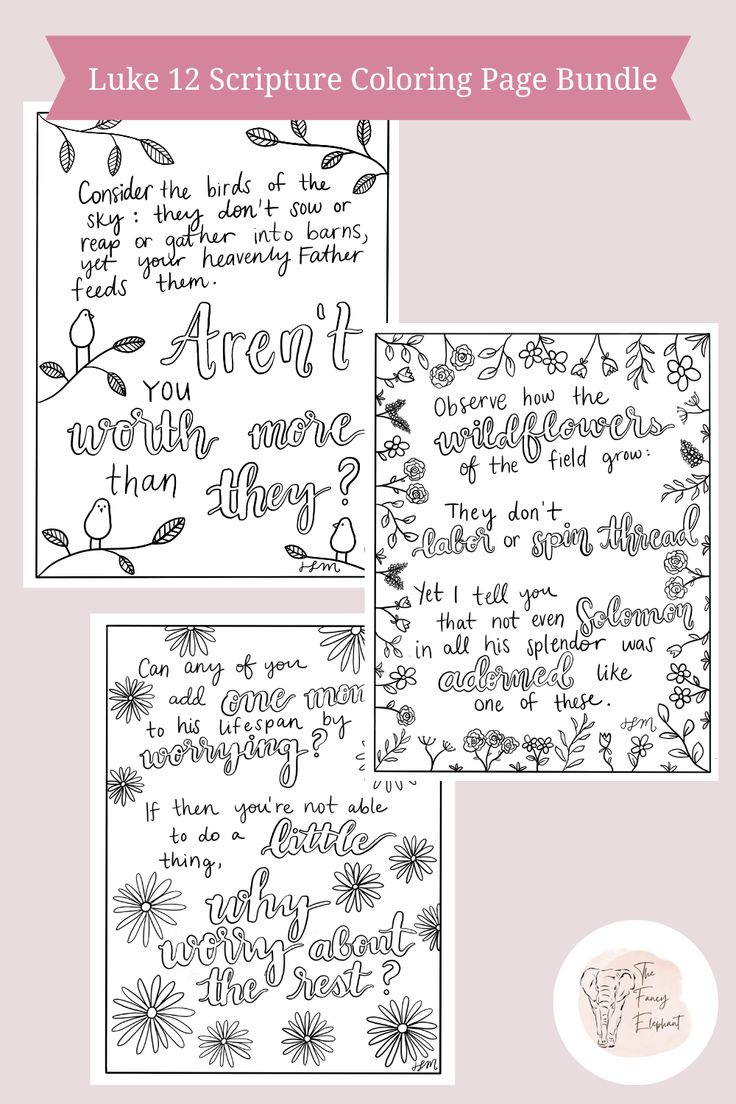 Luke 12 Scripture Coloring Page Bundle
Consider the birds of the
sky: they don't sow or
reap or gather into barns,
yet your heavenly Father
feeds them.
Aren't
YOU
worth more
than they?
JSM
Observe how the
wildflowers
of the field grow:
They don't
labor or spin thread
Yet I tell you
that not even Solomon
in all his splendor was
adorned like
one of these.
Can any of you
add one mom
to his lifespan by
worrying?
If then you're not able
to do a little
thing,
why
worry about
the rest?
The
Fancy
Elephant